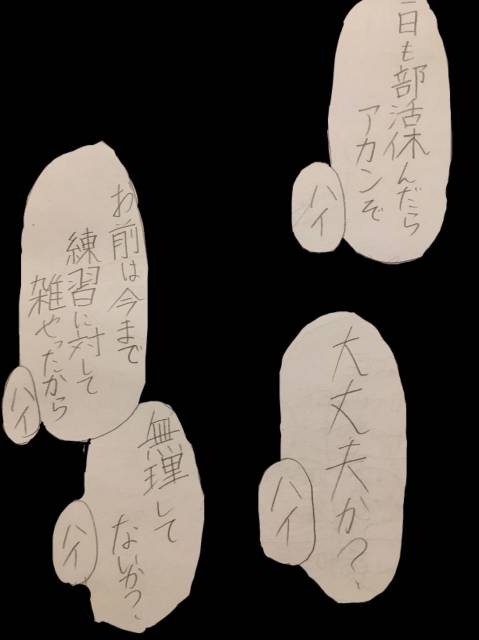 一日も部活休んだら
アカンぞ
ハイ
大丈夫か？
ハイ
お前は今まで
練習に対して
雑やったから
ハイ
無理して
ないか？
ハイ